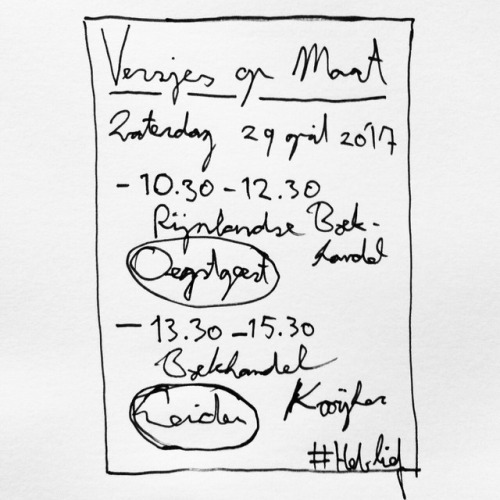 Versjes op Maat
Zaterdag 29 april 2017
- 10.30 - 12.30
Rijnlandse Boek-
handel
Oegstgeest
- 13.30 - 15.30
Boekhandel
Leiden Kooyker